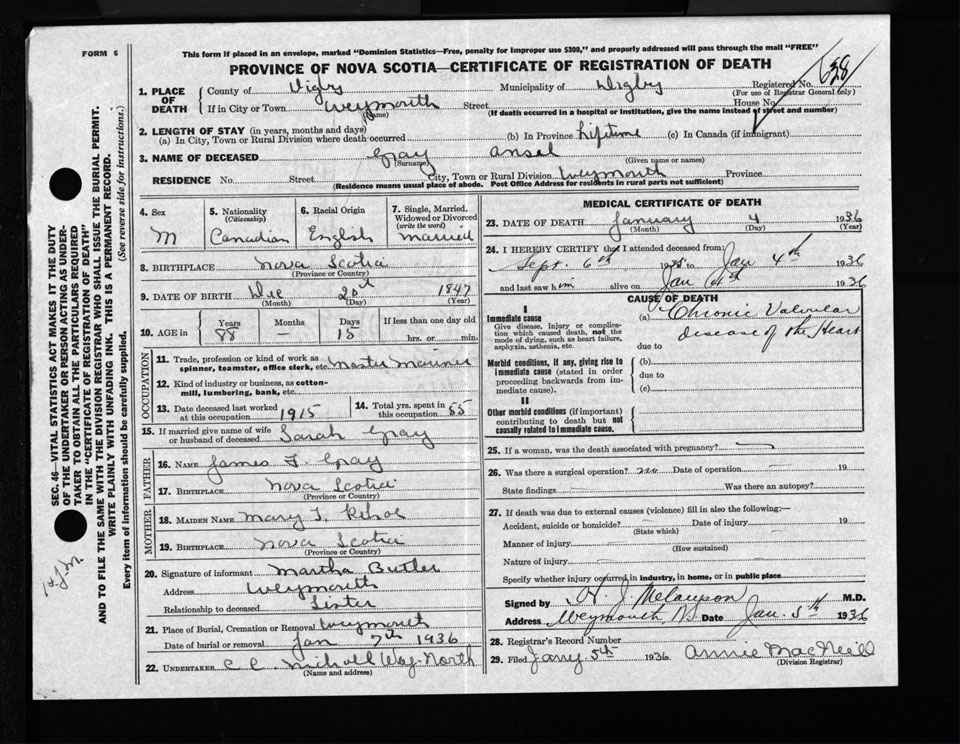 FORM 6
This form if placed in an envelope, marked "Dominion Statistics—Free, penalty for improper use $300," and properly addressed will pass through the mail "FREE"
PROVINCE OF NOVA SCOTIA—CERTIFICATE OF REGISTRATION OF DEATH
628
1. PLACE OF DEATH
County of Digby
Municipality of Digby
Registered No.
(For use of Registrar General only)
If in City or Town Weymouth
(Name)
Street
House No.
(If death occurred in a hospital or institution, give the name instead of street and number)
2. LENGTH OF STAY (in years, months and days)
(a) In City, Town or Rural Division where death occurred
(b) In Province lifetime (c) In Canada (if immigrant)
3. NAME OF DECEASED Gray Ansel
(Surname) (Given name or names)
RESIDENCE No. Street City, Town or Rural Division Weymouth Province
(Residence means usual place of abode. Post Office Address for residents in rural parts not sufficient)
4. Sex
M
5. Nationality
(Citizenship)
Canadian
6. Racial Origin
English
7. Single, Married, Widowed or Divorced
(write the word)
married
8. BIRTHPLACE Nova Scotia
(Province or Country)
9. DATE OF BIRTH Dec 20th 1847
(Month) (Day) (Year)
10. AGE in
Years Months Days If less than one day old
88 — 15 hrs. or min.
OCCUPATION
11. Trade, profession or kind of work as spinner, teamster, office clerk, etc. Master Mariner
12. Kind of industry or business, as cotton-mill, lumbering, bank, etc.
13. Date deceased last worked at this occupation 1915
14. Total yrs. spent in this occupation 55
15. If married give name of wife or husband of deceased Sarah Gray
FATHER
16. NAME James T. Gray
17. BIRTHPLACE Nova Scotia
(Province or Country)
MOTHER
18. MAIDEN NAME Mary T.
19. BIRTHPLACE Nova Scotia
(Province or Country)
20. Signature of informant Martha Butler
Address Weymouth
Relationship to deceased Sister
21. Place of Burial, Cremation or Removal Weymouth
Date of burial or removal Jan 7th 1936
22. UNDERTAKER C C North
(Name and address)
MEDICAL CERTIFICATE OF DEATH
23. DATE OF DEATH January 4 1936
(Month) (Day) (Year)
24. I HEREBY CERTIFY that I attended deceased from:
Sept. 6th 1935 to Jan 4th 1936
and last saw him alive on Jan 4th 1936
CAUSE OF DEATH
I
Immediate cause
Give disease, injury or complication which caused death, not the mode of dying, such as heart failure, asphyxia, asthenia, etc.
(a) Chronic Valvular
disease of the Heart
due to
Morbid conditions, if any, giving rise to immediate cause (stated in order proceeding backwards from immediate cause).
(b)
due to
(c)
II
Other morbid conditions (if important) contributing to death but not causally related to immediate cause.
25. If a woman, was the death associated with pregnancy?
26. Was there a surgical operation? no Date of operation 19
State findings Was there an autopsy?
27. If death was due to external causes (violence) fill in also the following:—
Accident, suicide or homicide? Date of injury 19
(State which)
Manner of injury
(How sustained)
Nature of injury
Specify whether injury occurred in industry, in home, or in public place
Signed by H. J. Melançon M.D.
Address Weymouth, N.S. Date Jan. 5th 1936
28. Registrar's Record Number
29. Filed Jany 5th 1936 Annie MacNeill
(Division Registrar)
SEC. 46—VITAL STATISTICS ACT MAKES IT THE DUTY
OF THE UNDERTAKER OR PERSON ACTING AS UNDER-
TAKER TO OBTAIN ALL THE PARTICULARS REQUIRED
IN THE "CERTIFICATE OF REGISTRATION OF DEATH"
AND TO FILE THE SAME WITH THE DIVISION REGISTRAR WHO SHALL ISSUE THE BURIAL PERMIT.
WRITE PLAINLY WITH UNFADING INK. THIS IS A PERMANENT RECORD.
Every item of information should be carefully supplied. (See reverse side for instructions.)